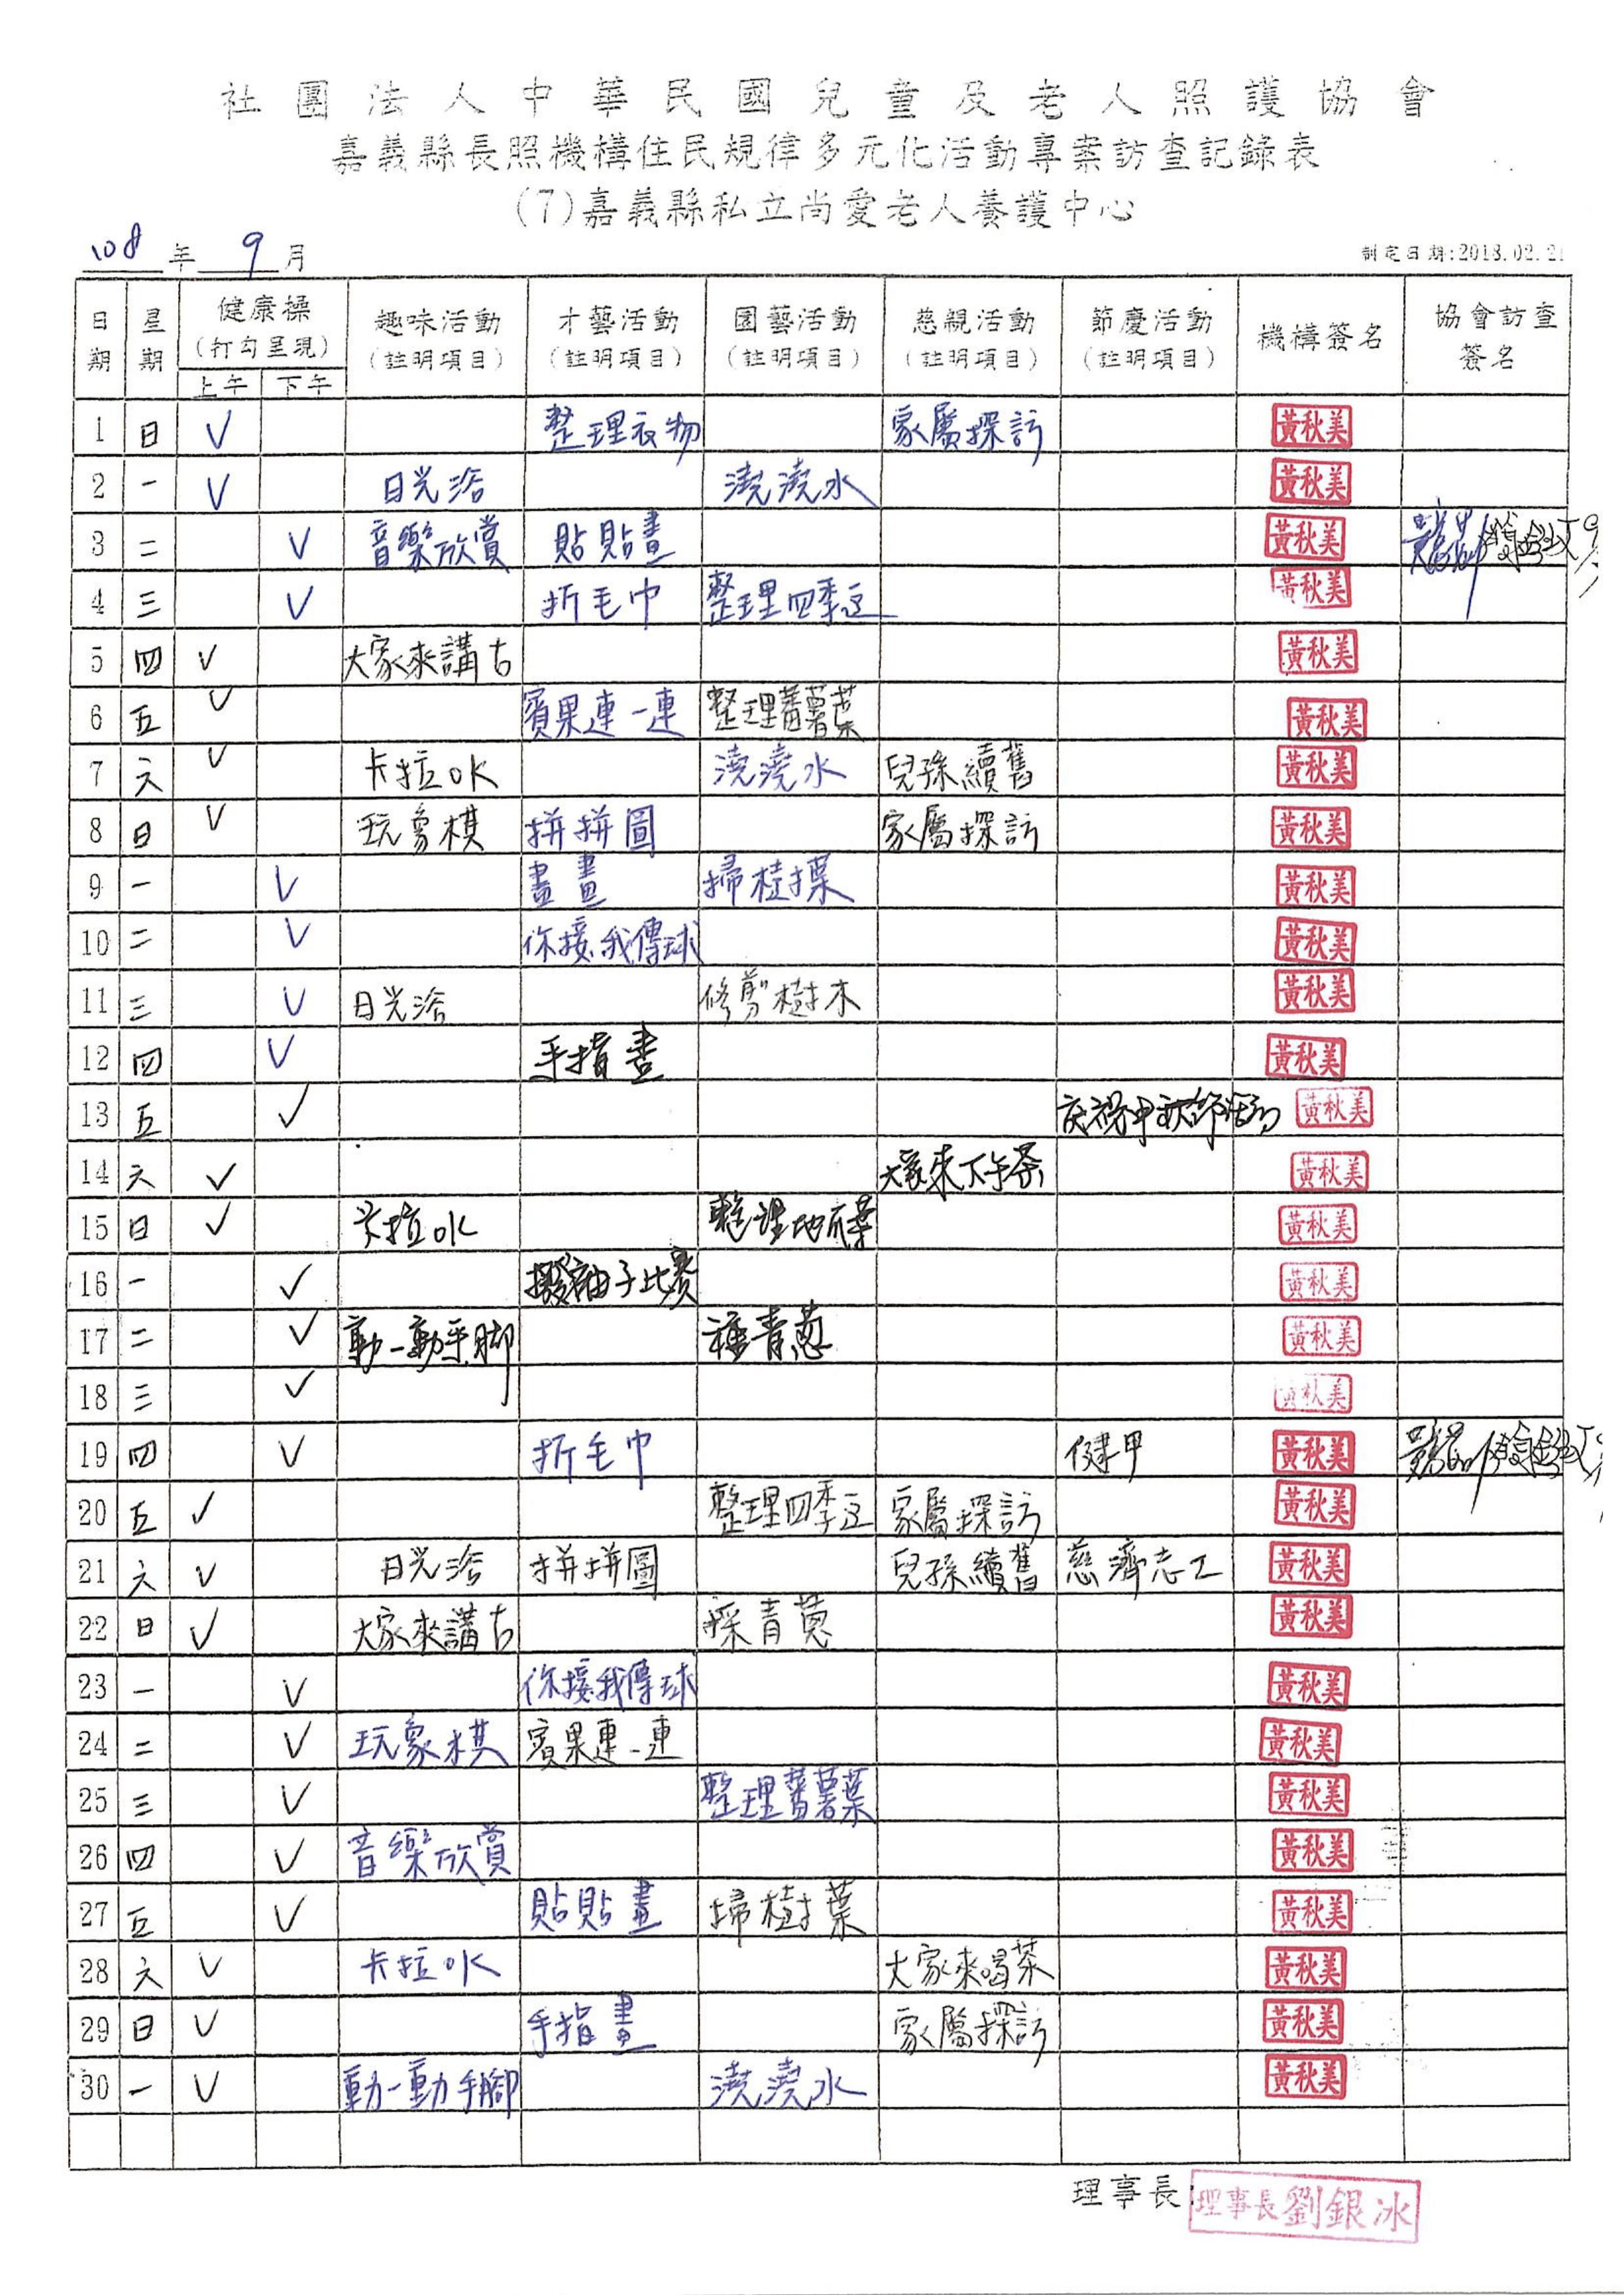 社團法人中華民國兒童及老人照護協會
嘉義縣長照機構住民規律多元化活動專案訪查記錄表
(7)嘉義縣私立尚愛老人養護中心
108年9月 制定日期:2018.02.21
日期 星期 健康操(打勾呈現) 上午 下午 趣味活動(註明項目) 才藝活動(註明項目) 園藝活動(註明項目) 慈親活動(註明項目) 節慶活動(註明項目) 機構簽名 協會訪查簽名
1 日 ✓ 整理衣物 家屬探訪 黃秋美
2 一 ✓ 日光浴 澆澆水 黃秋美
3 二 ✓ 音樂欣賞 貼貼畫 黃秋美
4 三 ✓ 折毛巾 整理四季豆 黃秋美
5 四 ✓ 大家來講古 黃秋美
6 五 ✓ 賓果連一連 整理蕃薯葉 黃秋美
7 六 ✓ 卡拉OK 澆澆水 兒孫續舊 黃秋美
8 日 ✓ 玩象棋 拼拼圖 家屬探訪 黃秋美
9 一 ✓ 畫畫 掃樹葉 黃秋美
10 二 ✓ 你接我傳球 黃秋美
11 三 ✓ 日光浴 修剪樹木 黃秋美
12 四 ✓ 手指畫 黃秋美
13 五 ✓ 慶祝中秋節活動 黃秋美
14 六 ✓ 大家來下午茶 黃秋美
15 日 ✓ 卡拉OK 整理地瓜葉 黃秋美
16 一 ✓ 撥柚子比賽 黃秋美
17 二 ✓ 動一動手腳 種青蔥 黃秋美
18 三 ✓ 黃秋美
19 四 ✓ 折毛巾 黃秋美
20 五 ✓ 整理四季豆 家屬探訪 黃秋美
21 六 ✓ 日光浴 拼拼圖 兒孫續舊 慈濟志工 黃秋美
22 日 ✓ 大家來講古 採青蔥 黃秋美
23 一 ✓ 你接我傳球 黃秋美
24 二 ✓ 玩象棋 賓果連一連 黃秋美
25 三 ✓ 整理蕃薯葉 黃秋美
26 四 ✓ 音樂欣賞 黃秋美
27 五 ✓ 貼貼畫 掃樹葉 黃秋美
28 六 ✓ 卡拉OK 大家來喝茶 黃秋美
29 日 ✓ 手指畫 家屬探訪 黃秋美
30 一 ✓ 動一動手腳 澆澆水 黃秋美
理事長: 理事長劉銀冰